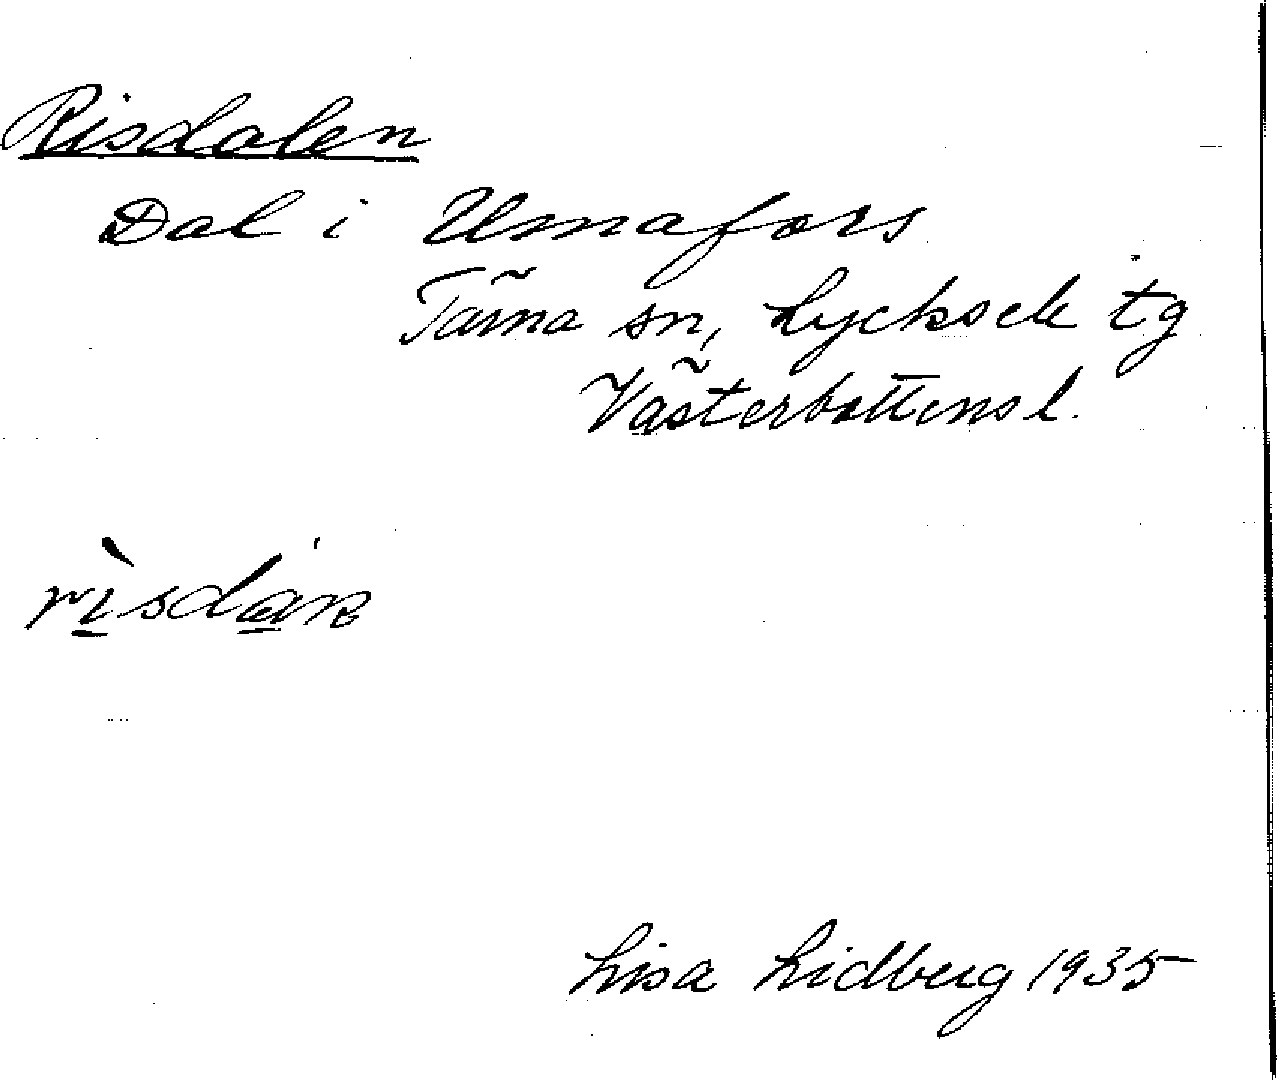 Risdalen
Dal i Umafors
Tärna sn, Lycksele tg
Västerbottens l.
Lisa Lidberg 1935